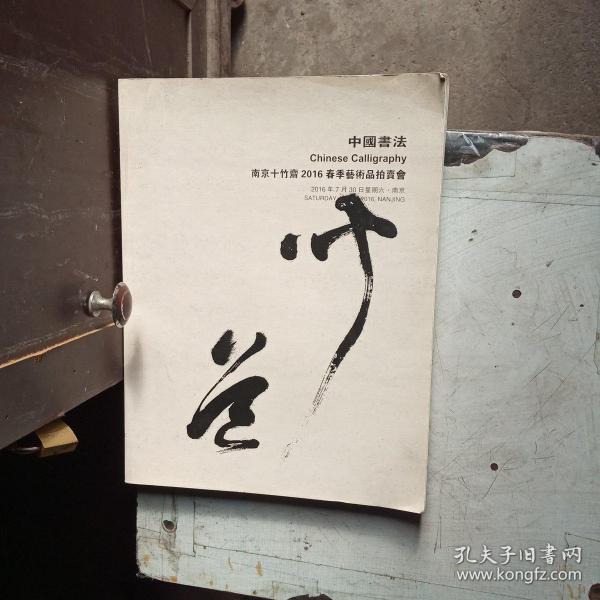 中國書法
Chinese Calligraphy
南京十竹齋 2016 春季藝術品拍賣會
2016 年 7 月 30 日星期六·南京
SATURDAY 2016, NANJING
孔夫子旧书网
www.kongfz.com